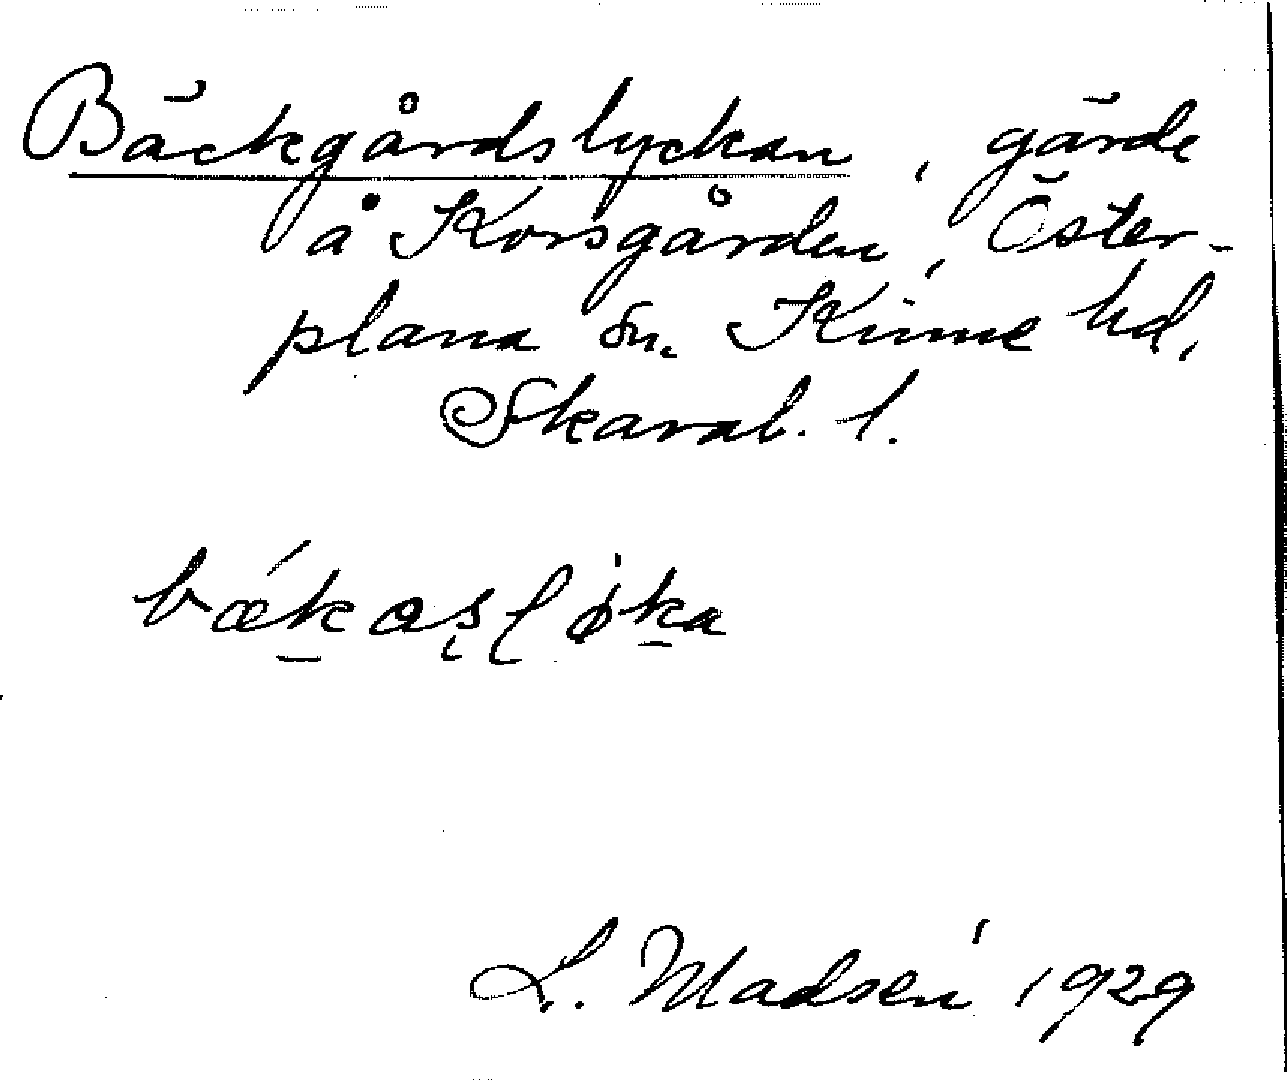 Bäckgårdslyckan, gärde
å Korsgården, Öster-
plana sn. Kinne hd,
Skarab. l.
L. Madsén 1929